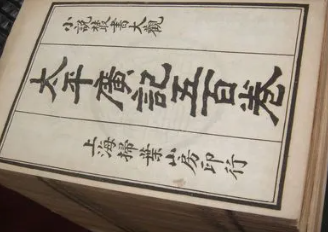 小説叢書大觀
太平廣記五百卷
上海掃葉山房印行